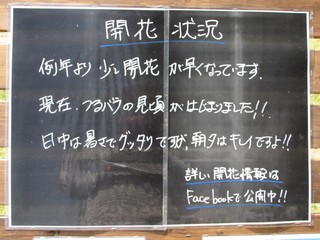 開花状況
例年より少し開花が早くなっています.
現在、つるバラの見頃がはじまりました!!
日中は暑さでグッタリですが、朝夕はキレイですよ!!
詳しい開花情報は
Facebookで公開中!!